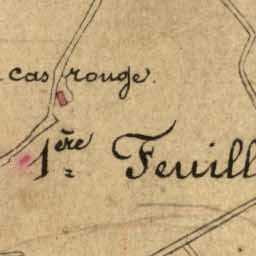 cas rouge.
1ère Feuill